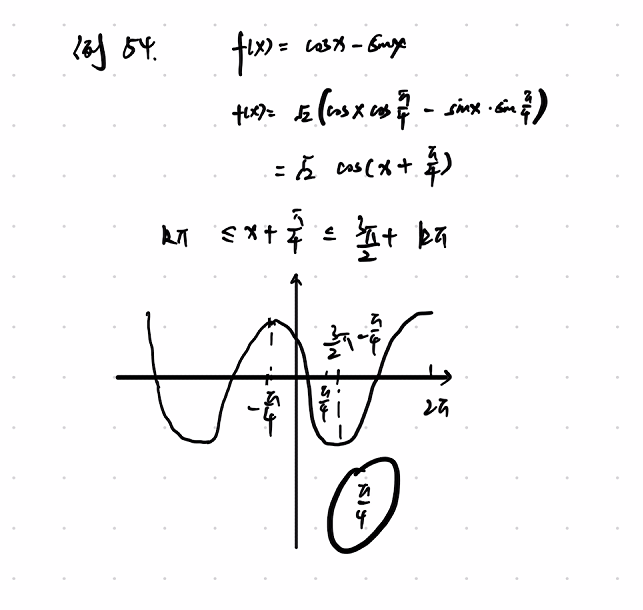 例 54. f(x) = cosx - sinx
f(x) = √2 (cosx cos π/4 - sinx · sin π/4)
= √2 cos(x + π/4)
kπ ≤ x + π/4 ≤ 3π/2 + kπ
3/2 π - π/4
-π/4 π/4 2π
π/4